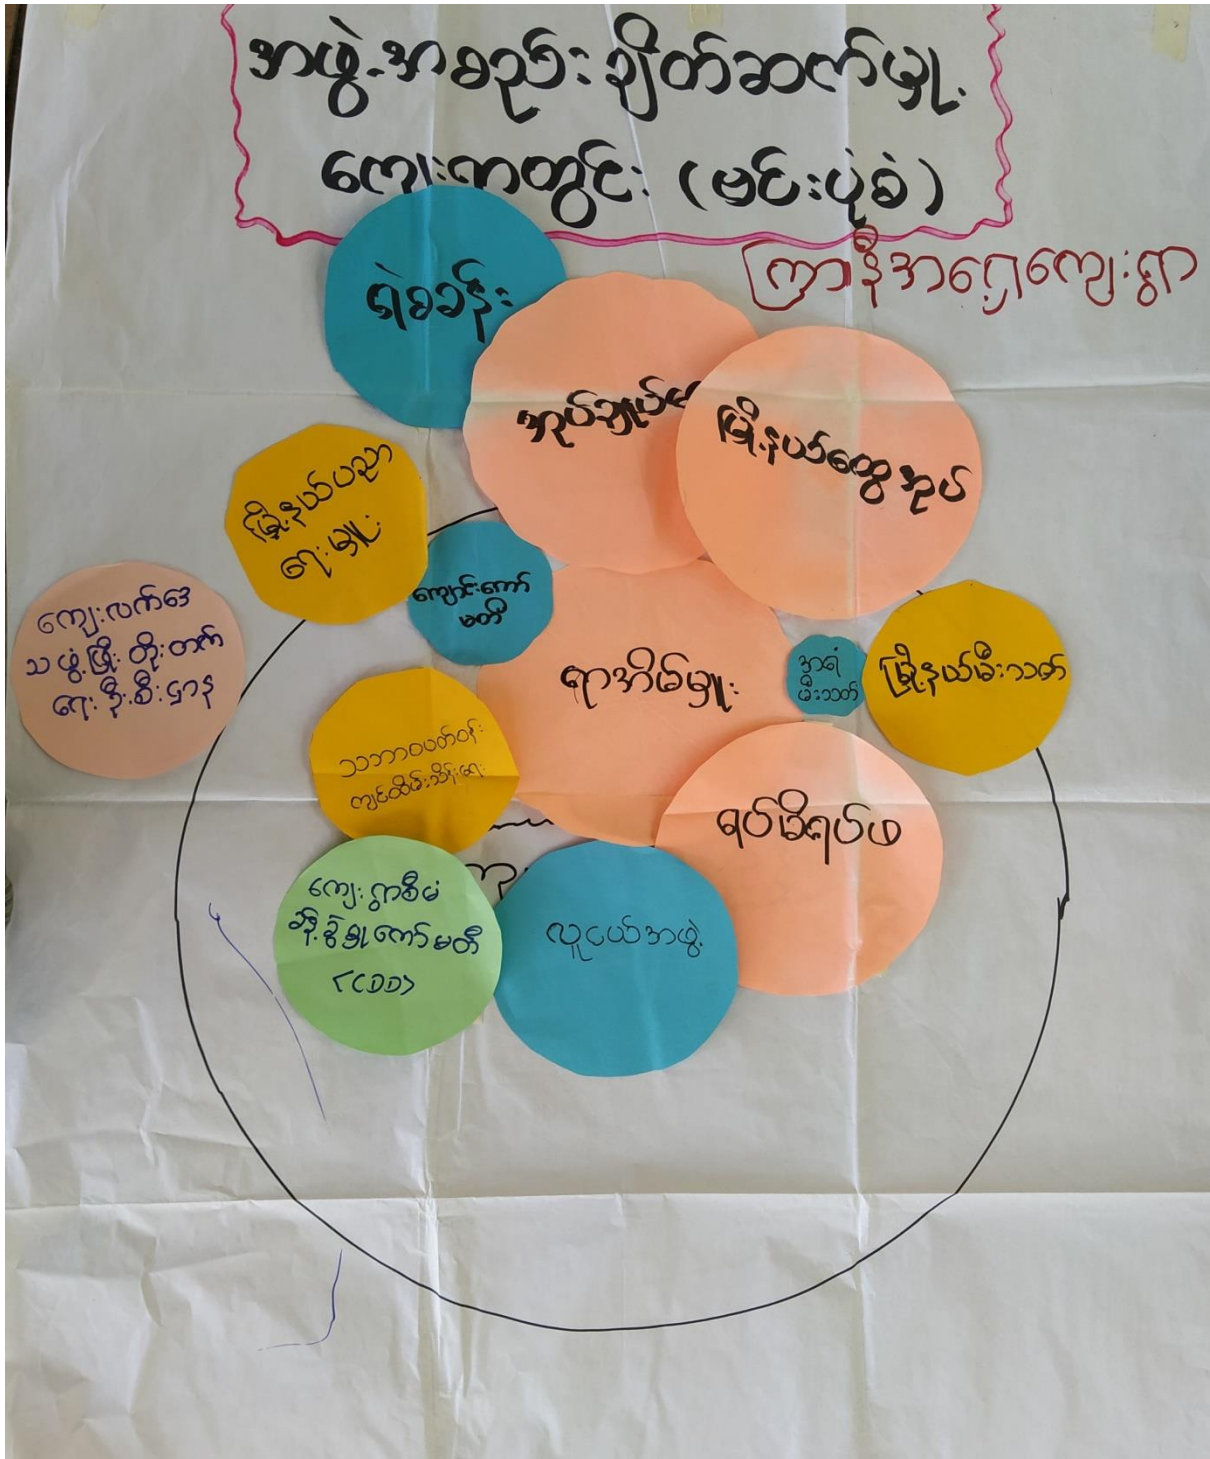 အဖွဲ့အစည်းချိတ်ဆက်မှု့
ကျေးရွာတွင်း (ဗင်းပုံစံ)
ကြာနီအရှေ့ကျေးရွာ
ရဲစခန်း
အုပ်ချုပ်ရေး
မြို့နယ်ထွေအုပ်
မြို့နယ်ပညာ
ရေးမှူး
ကျောင်းကော်
မတီ
ကျေးလက်ဒေ
သဖွံ့ဖြိုးတိုးတက်
ရေးဦးစီးဌာန
ရာအိမ်မှူး
အရံ
မီးသတ်
မြို့နယ်မီးသတ်
သဘာဝပတ်ဝန်း
ကျင်ထိမ်းသိန်းရေး
ရပ်မိရပ်ဖ
ကျေးရွာစီမံ
ခန့်ခွဲမှုကော်မတီ
<CDD>
လူငယ်အဖွဲ့